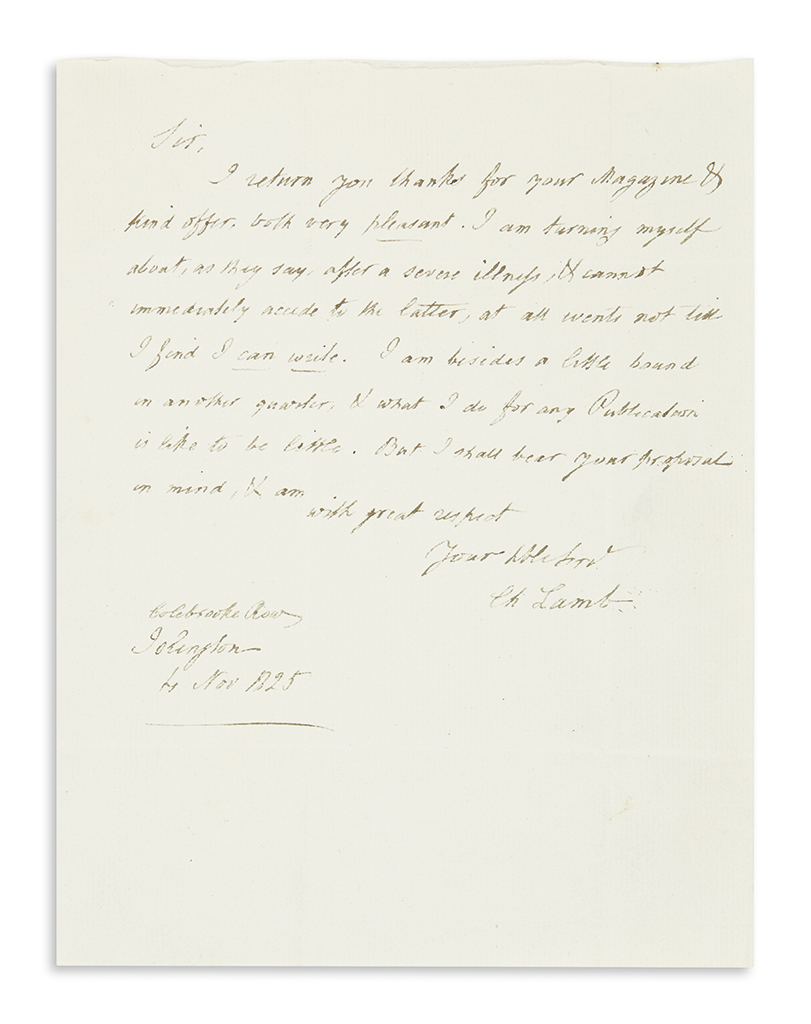 Sir,
I return you thanks for your Magazine &
kind offer, both very pleasant. I am turning myself
about, as they say, after a severe illness, & cannot
immediately accede to the latter, at all events not till
I find I can write. I am besides a little bound
in another quarter, & what I do for any Publication
is like to be little. But I shall bear your proposal
in mind, & am
with great respect
Your hble servt
Ch Lamb.
Colebrooke Row
Islington
Nov 1825